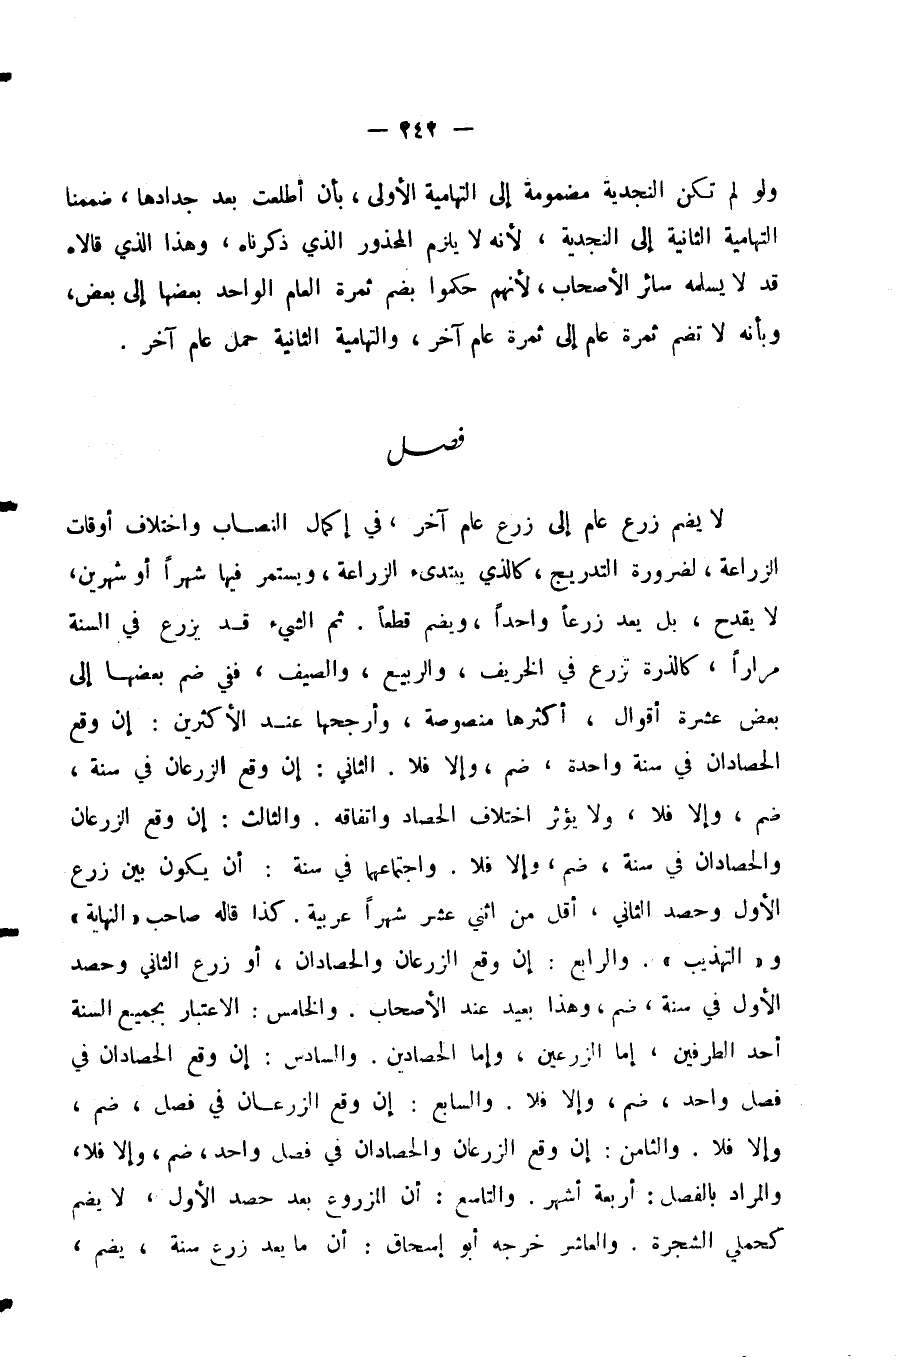 — ٢٤٢ —
ولو لم تكن النجدية مضمومة إلى التهامية الأولى ، بأن أطلعت بعد جدادها ، ضممنا
التهامية الثانية إلى النجدية ، لأنه لا يلزم المحذور الذي ذكرناه ، وهذا الذي قالاه
قد لا يسلمه سائر الأصحاب ، لأنهم حكموا بضم ثمرة العام الواحد بعضها إلى بعض ،
وبأنه لا تضم ثمرة عام إلى ثمرة عام آخر ، والتهامية الثانية حمل عام آخر .
فصل
لا يضم زرع عام إلى زرع عام آخر ، في إكمال النصاب واختلاف أوقات
الزراعة ، لضرورة التدريج ، كالذي يبتدىء الزراعة ، ويستمر فيها شهراً أو شهرين ،
لا يقدح ، بل يعد زرعاً واحداً ، ويضم قطعاً . ثم الشيء قد يزرع في السنة
مراراً ، كالذرة تزرع في الخريف ، والربيع ، والصيف ، ففي ضم بعضها إلى
بعض عشرة أقوال ، أكثرها منصوصة ، وأرجحها عند الأكثرين : إن وقع
الحصادان في سنة واحدة ، ضم ، وإلا فلا . الثاني : إن وقع الزرعان في سنة ،
ضم ، وإلا فلا ، ولا يؤثر اختلاف الحصاد واتفاقه . والثالث : إن وقع الزرعان
والحصادان في سنة ، ضم ، وإلا فلا . واجتماعها في سنة : أن يكون بين زرع
الأول وحصد الثاني ، أقل من اثني عشر شهراً عربية . كذا قاله صاحب « النهاية »
و « التهذيب » . والرابع : إن وقع الزرعان والحصادان ، أو زرع الثاني وحصد
الأول في سنة ، ضم ، وهذا بعيد عند الأصحاب . والخامس : الاعتبار بجميع السنة
أحد الطرفين ، إما الزرعين ، وإما الحصادين . والسادس : إن وقع الحصادان في
فصل واحد ، ضم ، وإلا فلا . والسابع : إن وقع الزرعان في فصل ، ضم ،
وإلا فلا . والثامن : إن وقع الزرعان والحصادان في فصل واحد ، ضم ، وإلا فلا ،
والمراد بالفصل : أربعة أشهر . والتاسع : أن المزروع بعد حصد الأول ، لا يضم
كحملي الشجرة . والعاشر خرجه أبو إسحاق : أن ما يعد زرع سنة ، يضم ،